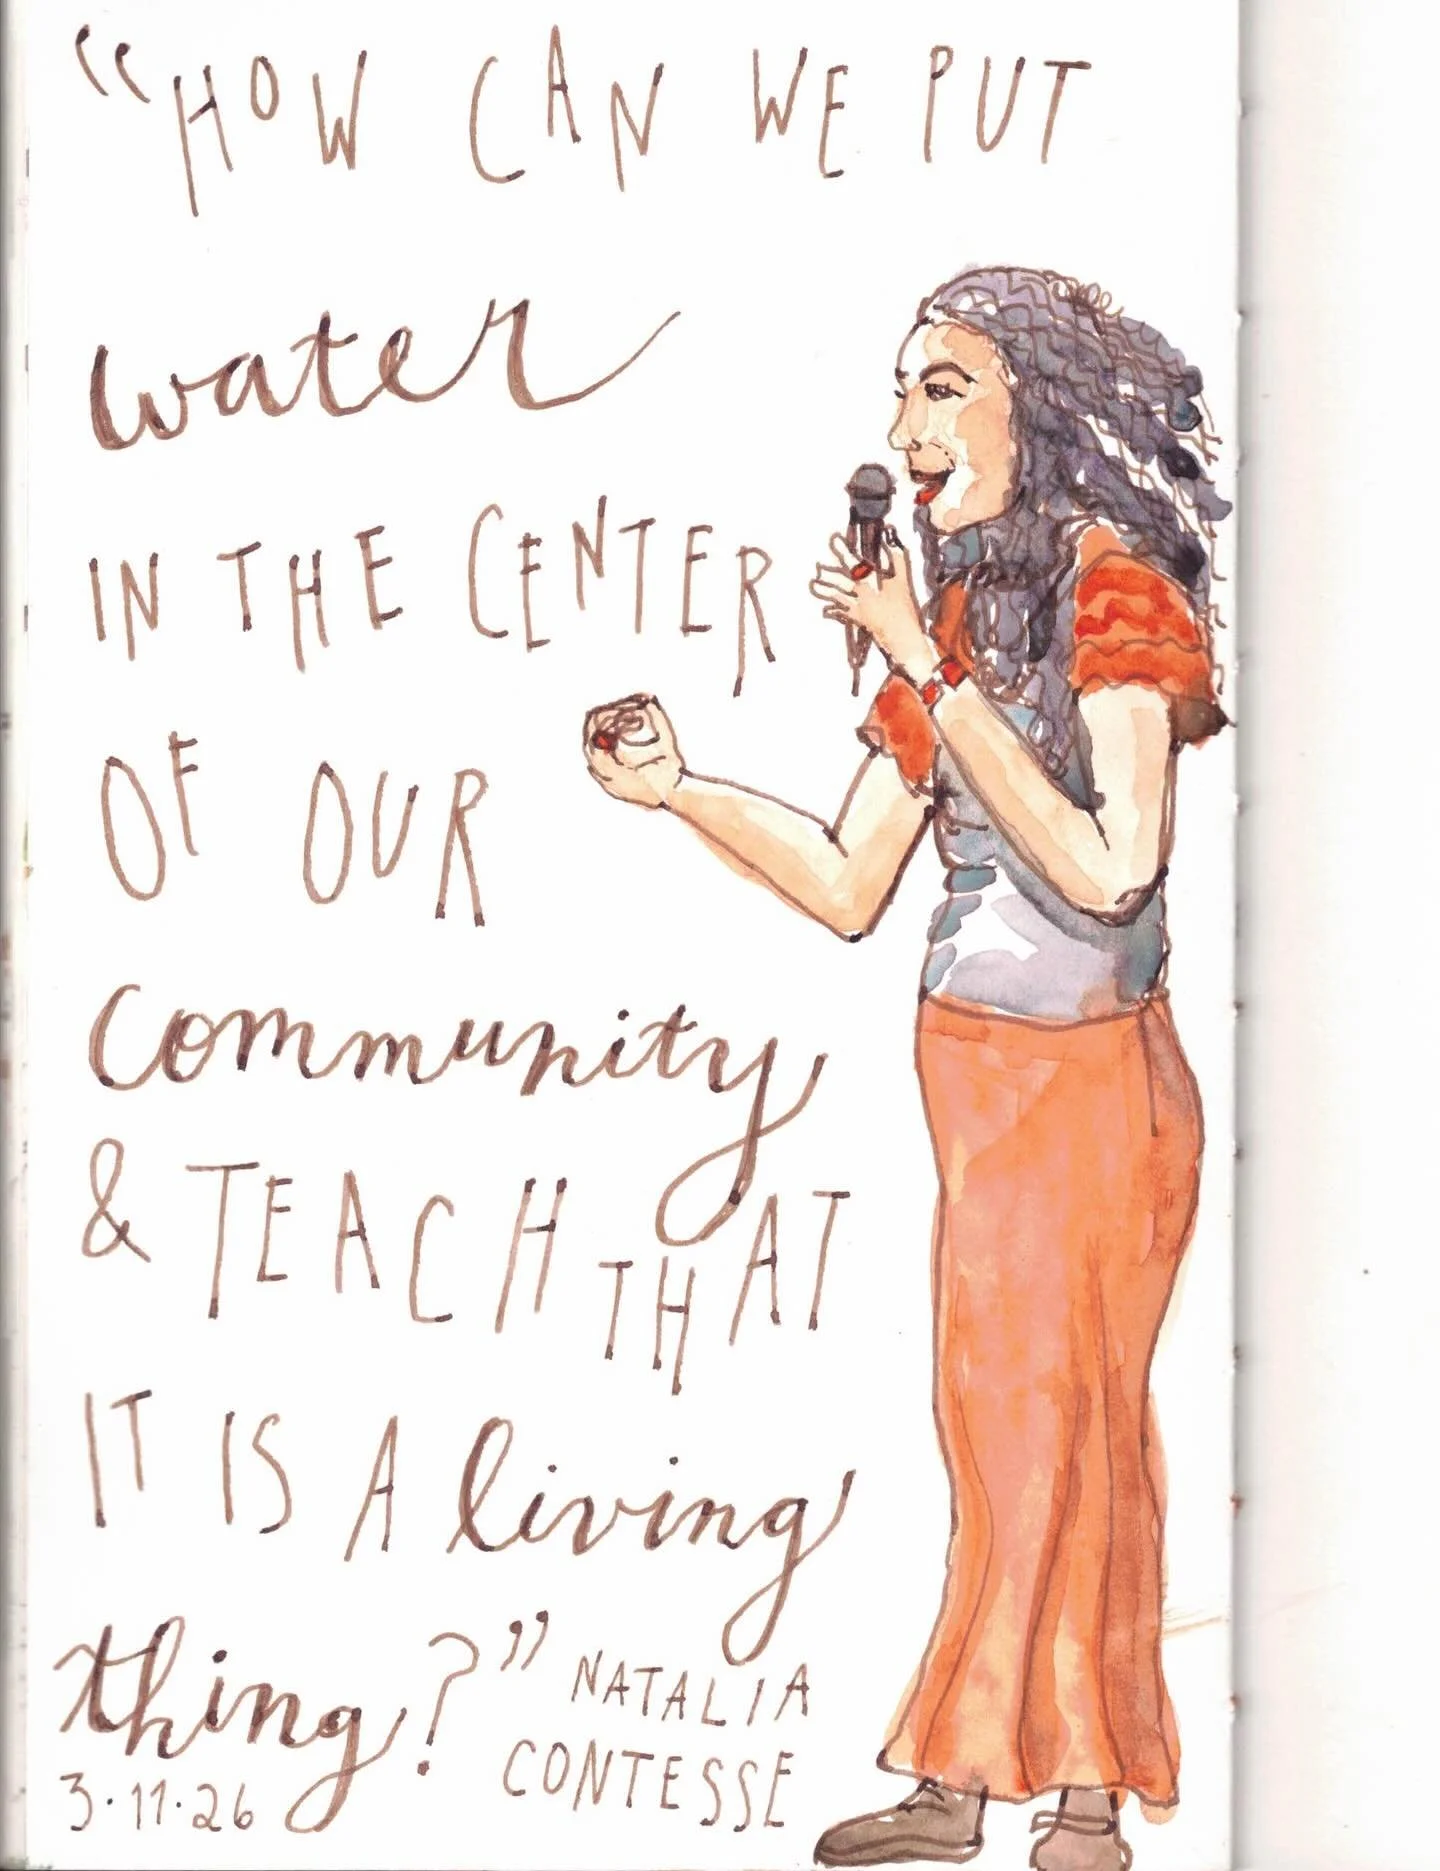 “HOW CAN WE PUT
water
IN THE CENTER
OF OUR
community
& TEACH THAT
IT IS A living
thing?” NATALIA
CONTESSE
3·11·26